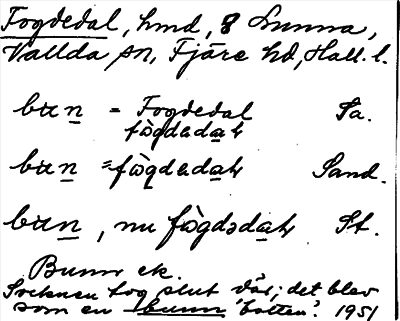 Fogdedal, hmd, 8 Sunna,
Vallda sn, Fjäre hd, Hall. l.
bɯn = Fogdedal Sa.
fògdədaɫ
bɯn = fògdədaɫ Sand.
bɯn, nu fògdədaɫ St.
Bunn ek.
Socknen tog slut där; det blev
som en bunn 'botten'. 1951